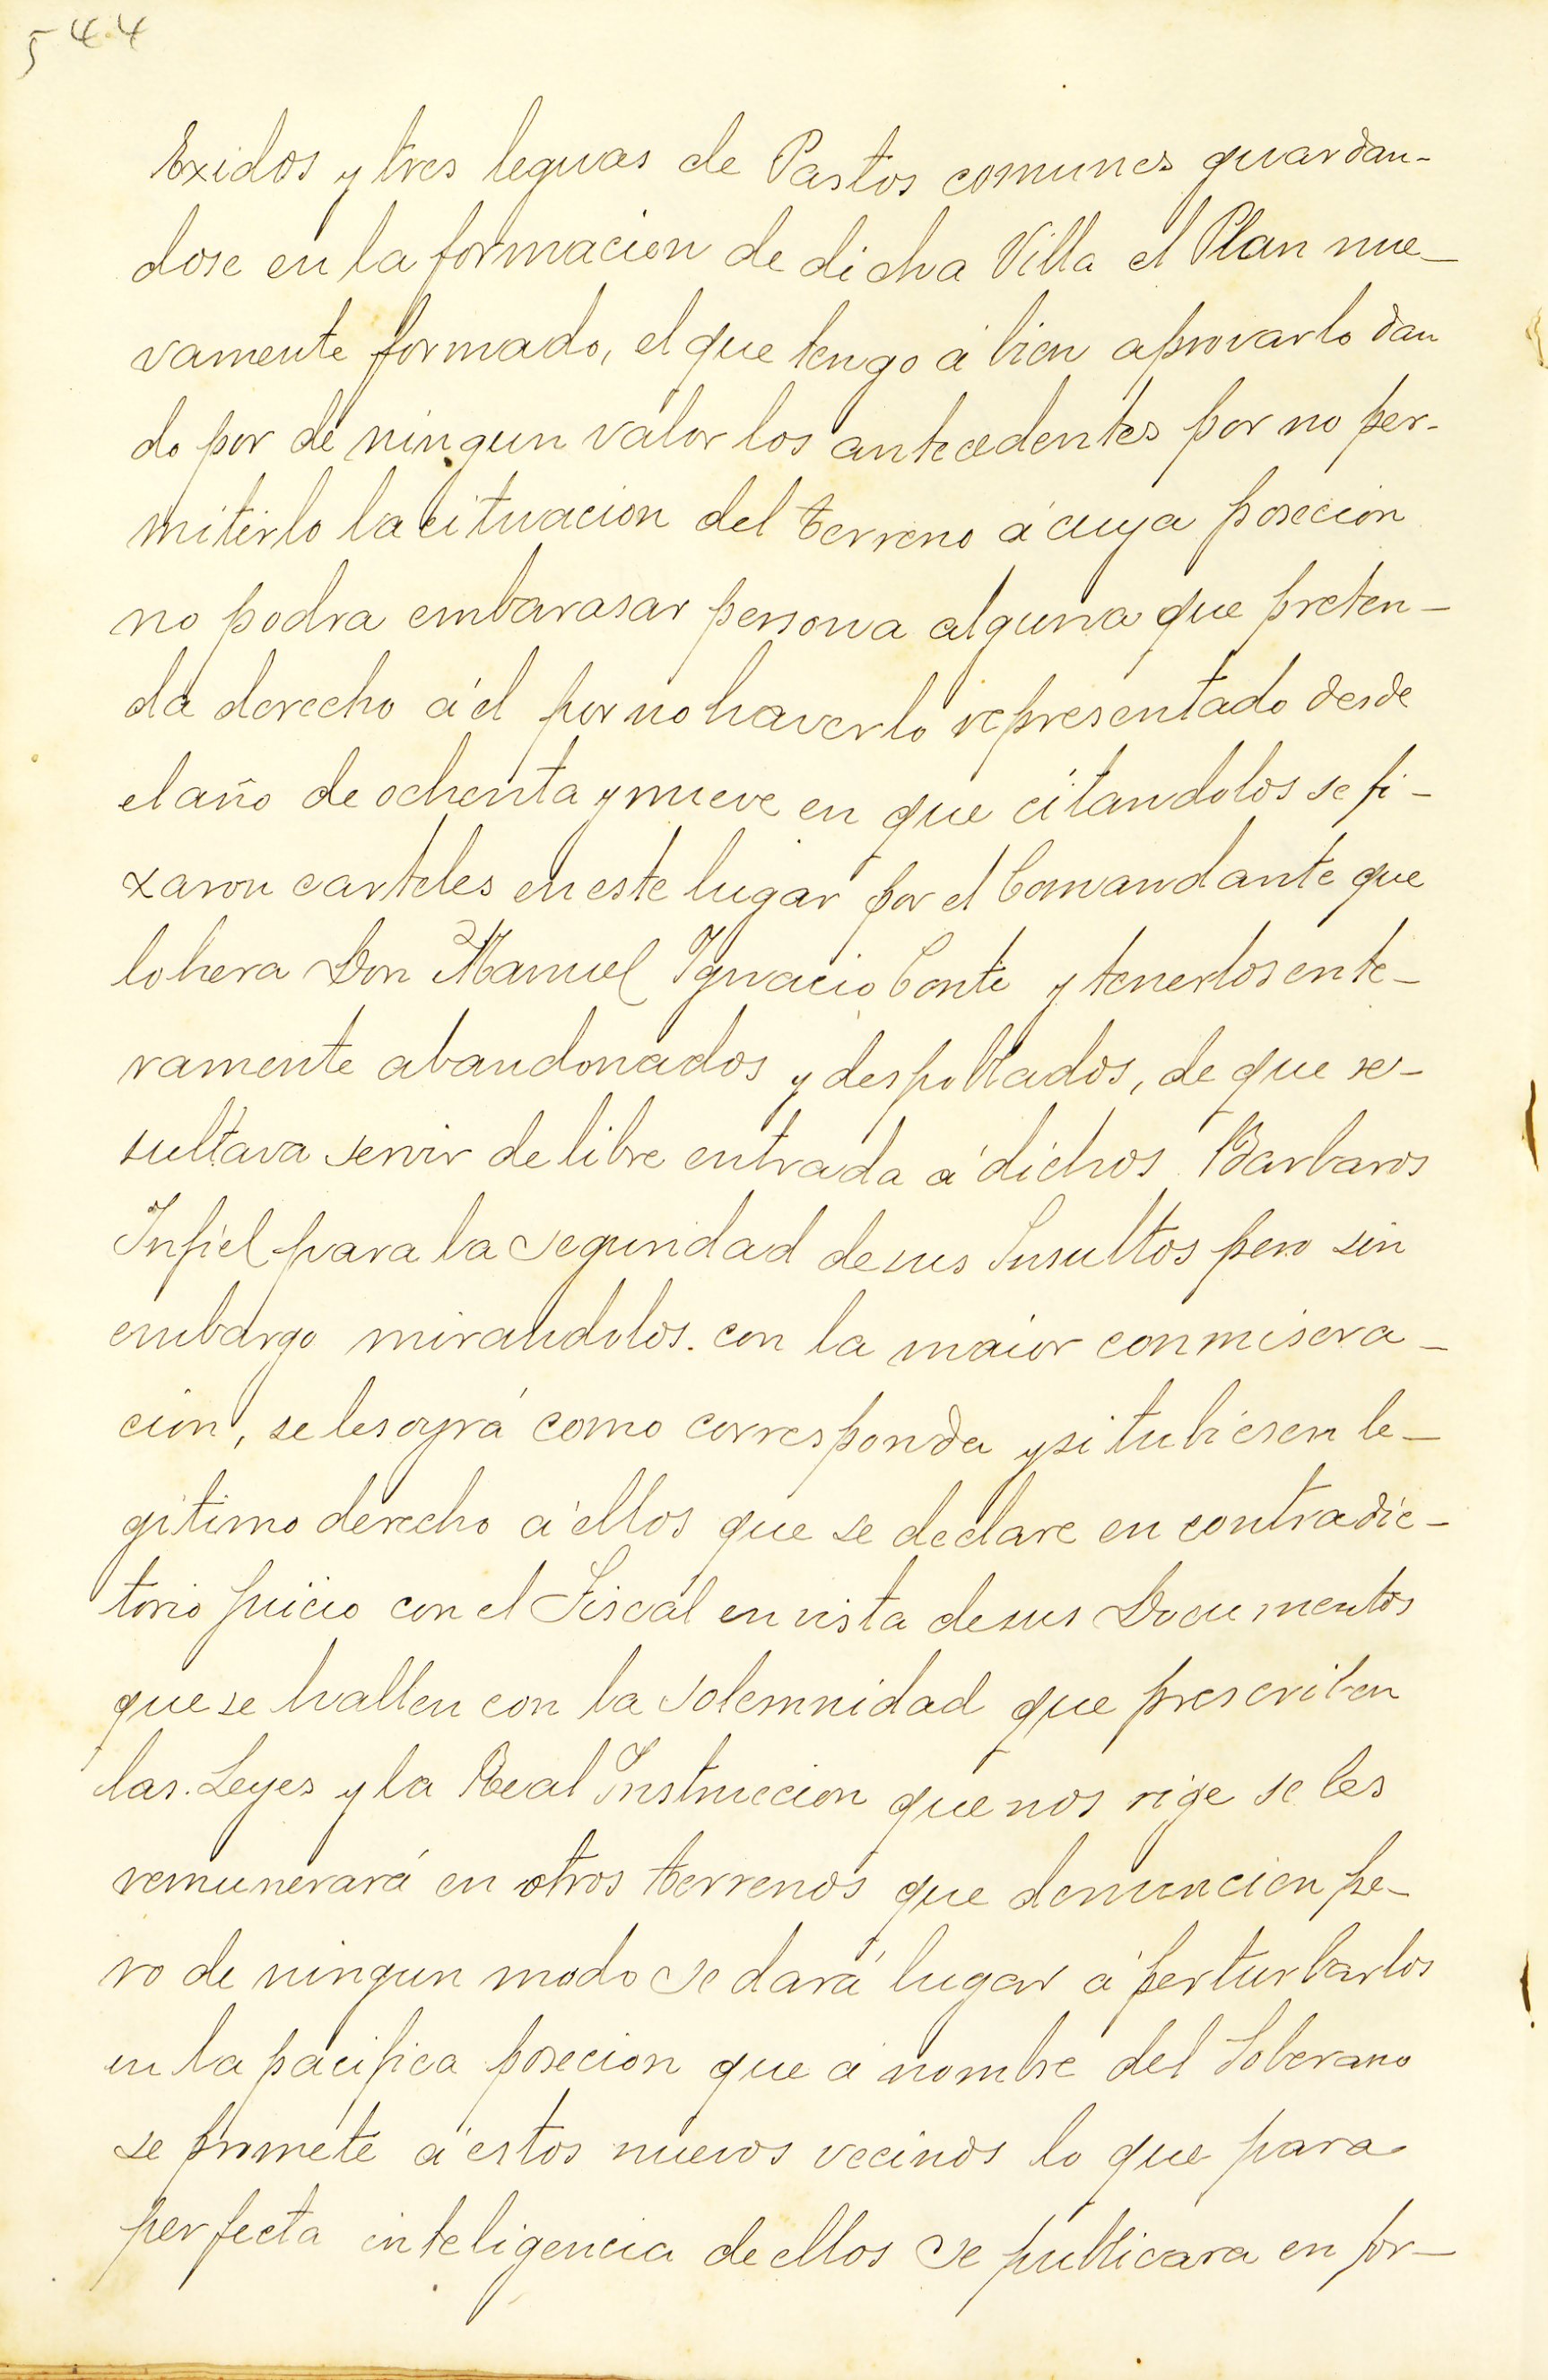 544
Exidos y tres leguas de Pastos comunes guardan-
dose en la formacion de dicha Villa el Plan nue-
vamente formado, el que tengo á bien aprovarlo dan
do por de ningun valor los antecedentes por no per-
mitirlo la cituacion del terreno á cuya posecion
no podra embarasar persona alguna que preten-
da derecho á él por no haverlo representado desde
el año de ochenta y nueve en que citandolos se fi-
xaron carteles en este lugar por el Comandante que
lo hera Don Manuel Ignacio Conti y tenerlos ente-
ramente abandonados y despoblados, de que re-
sultava servir de libre entrada a dichos Barbaros
Infiel para la seguridad de sus Insultos pero sin
embargo mirandolos. con la maior conmisera-
cion, se les oyrá como corresponda y si tubiesen le-
gitimo derecho á ellos que se declare en contradic-
torio juicio con el Fiscal en vista de sus Documentos
que se hallen con la solemnidad que prescriben
las. Leyes y la Real Instruccion que nos rige se les
remunerará en otros terrenos que denuncien pe-
ro de ningun modo se dará lugar á perturbarlos
en la pacifica posecion que á nombre del Soberano
se promete á estos nuevos vecinos lo que para
perfecta inteligencia de ellos se publicara en for-